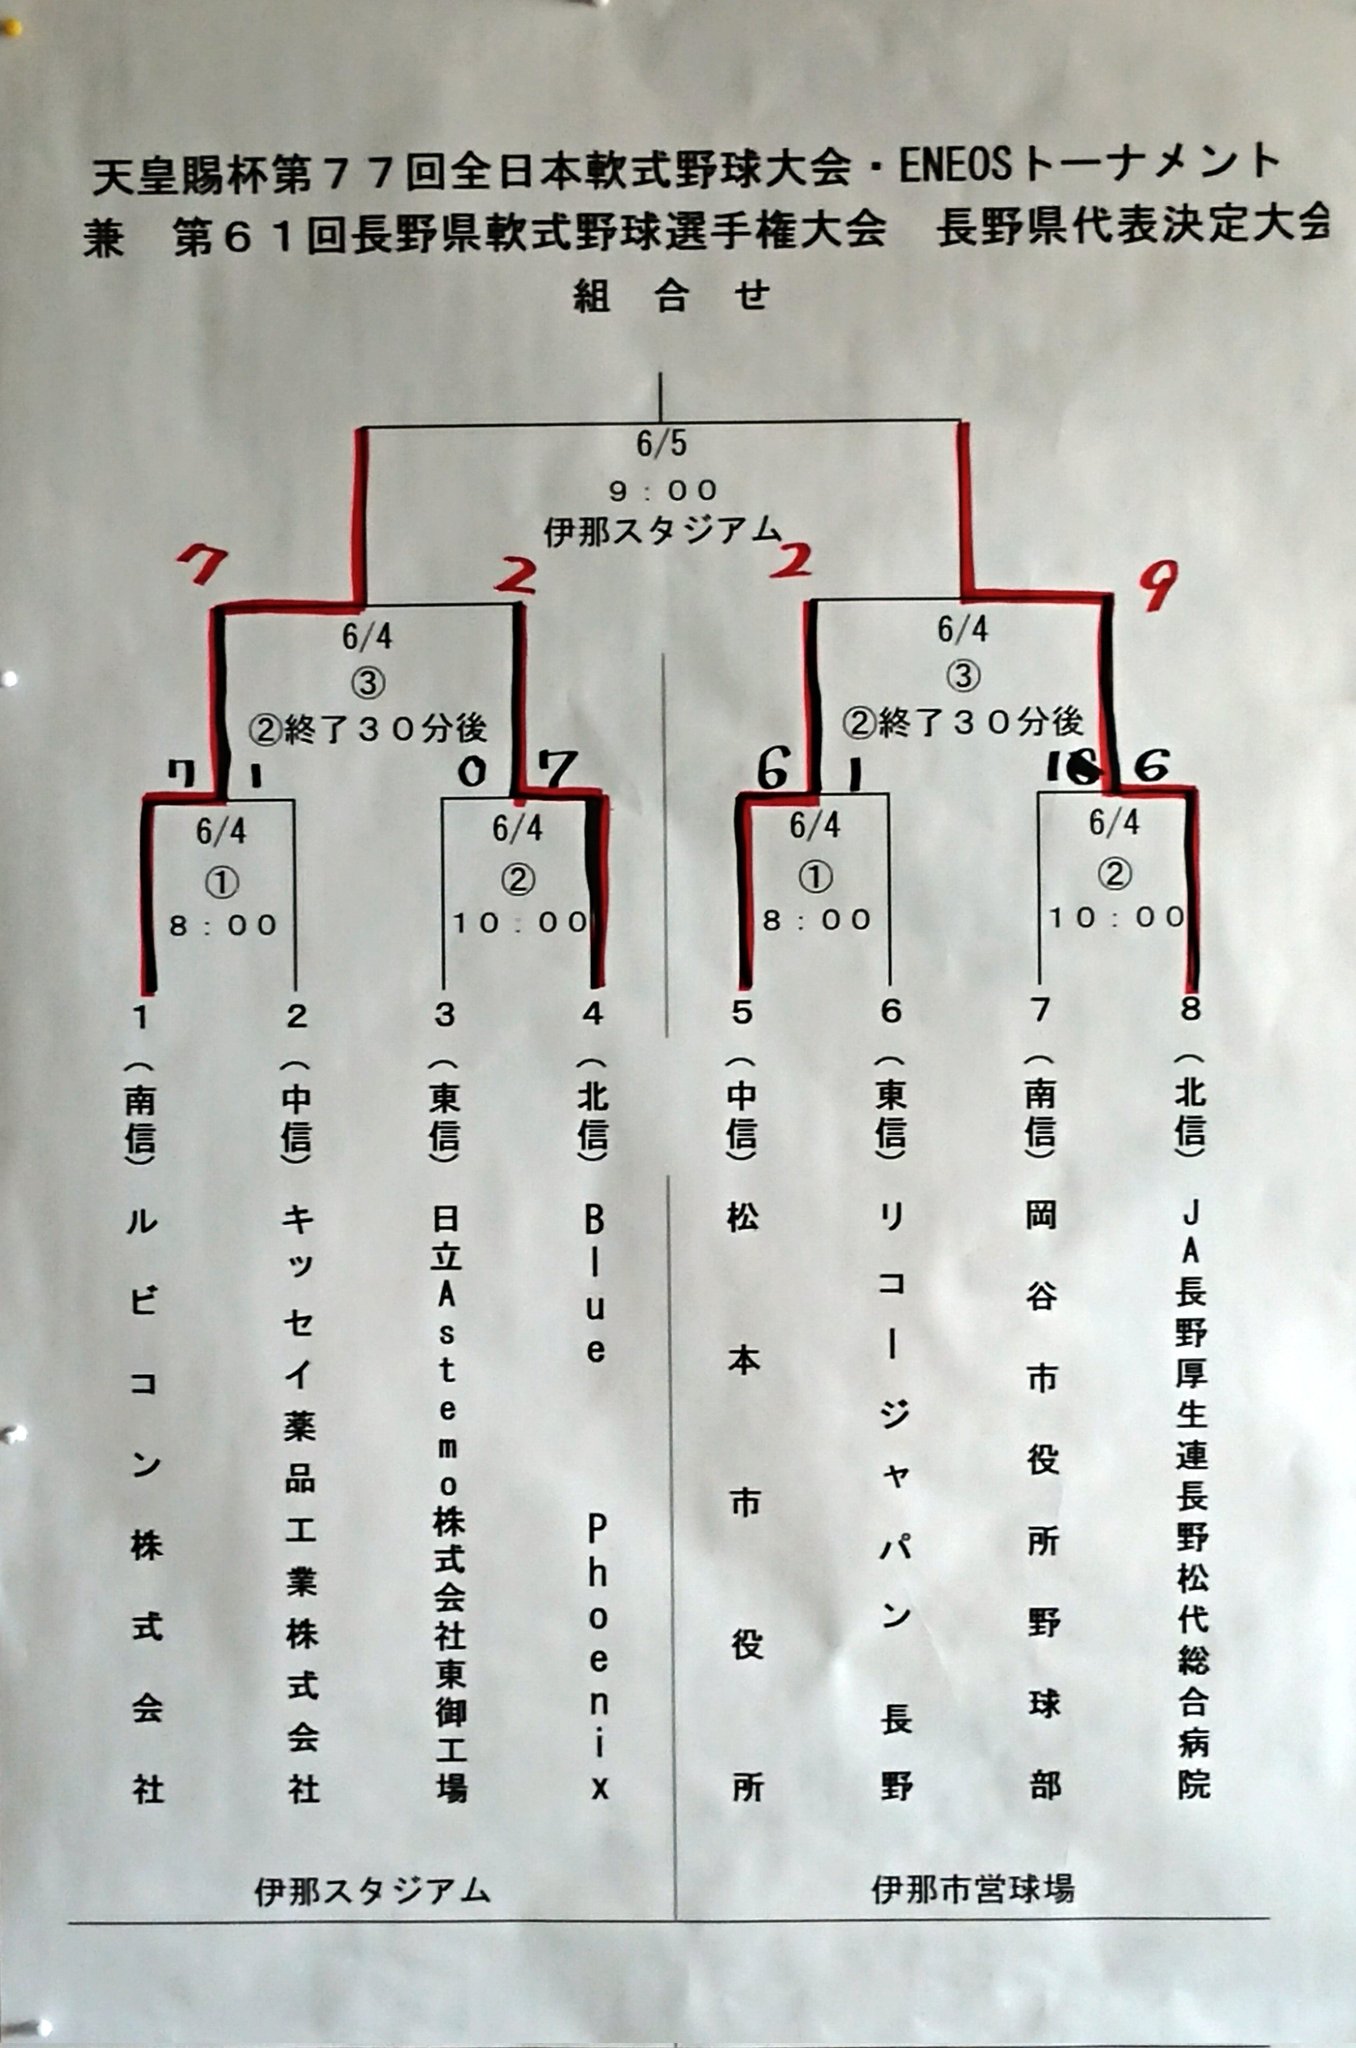 天皇賜杯第７７回全日本軟式野球大会・ENEOSトーナメント
兼　第６１回長野県軟式野球選手権大会　長野県代表決定大会
組　合　せ
6/5
９：００
伊那スタジアム
7 2 2 9
6/4 6/4
③ ③
②終了３０分後 ②終了３０分後
7 1 0 7 6 1 6
6/4 6/4 6/4 6/4
① ② ① ②
８：００ １０：００ ８：００ １０：００
1 2 3 4 5 6 7 8
（南信）ルビコン株式会社
（中信）キッセイ薬品工業株式会社
（東信）日立Astemo株式会社東御工場
（北信）Blue Phoenix
（中信）松本市役所
（東信）リコージャパン長野
（南信）岡谷市役所野球部
（北信）JA長野厚生連長野松代総合病院
伊那スタジアム 伊那市営球場